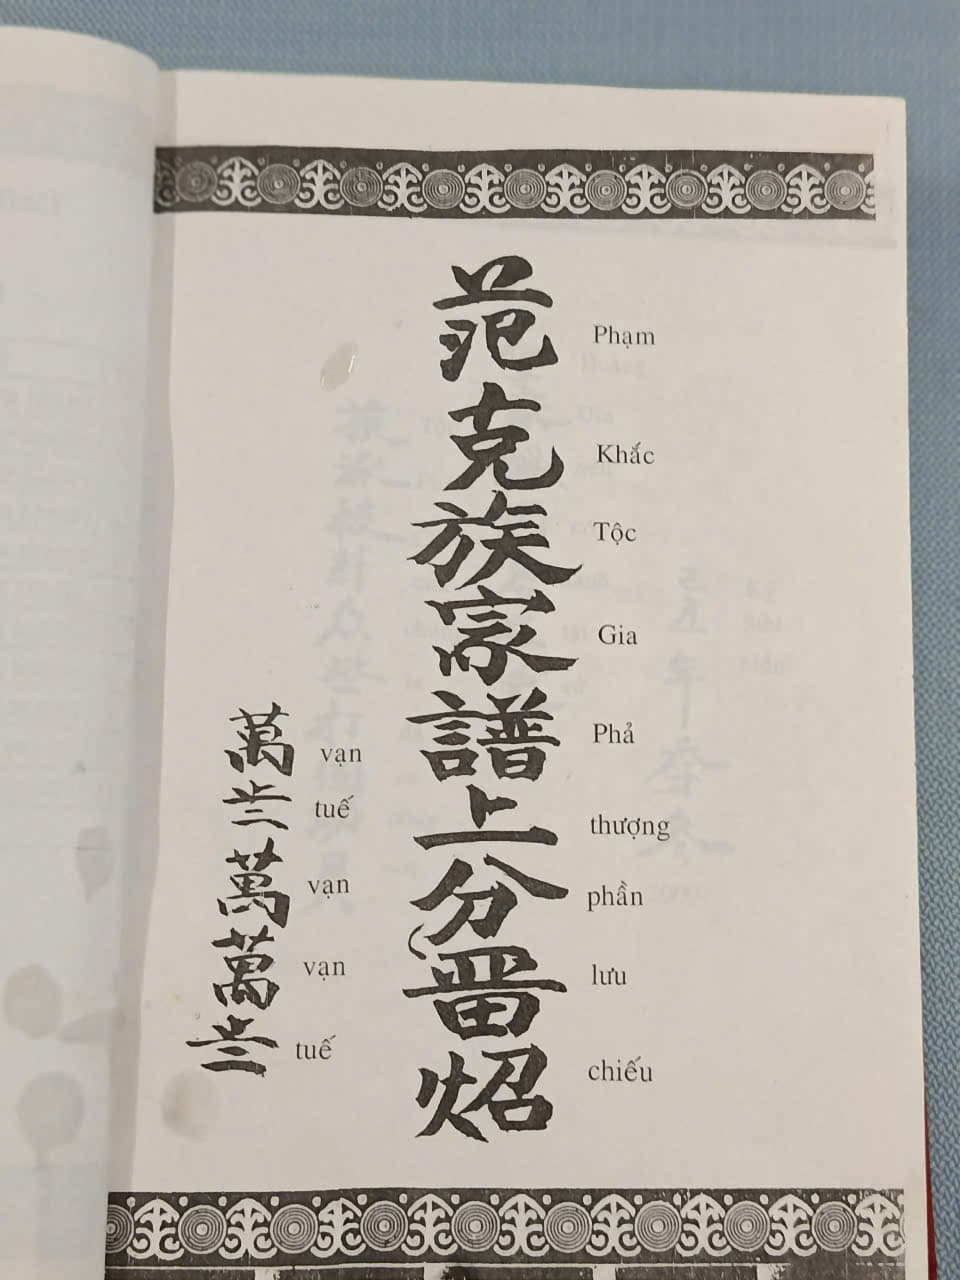 范克族家譜上分畱炤
Phạm
Khắc
Tộc
Gia
Phả
thượng
phần
lưu
chiếu
萬歲萬萬歲
vạn
tuế
vạn
vạn
tuế